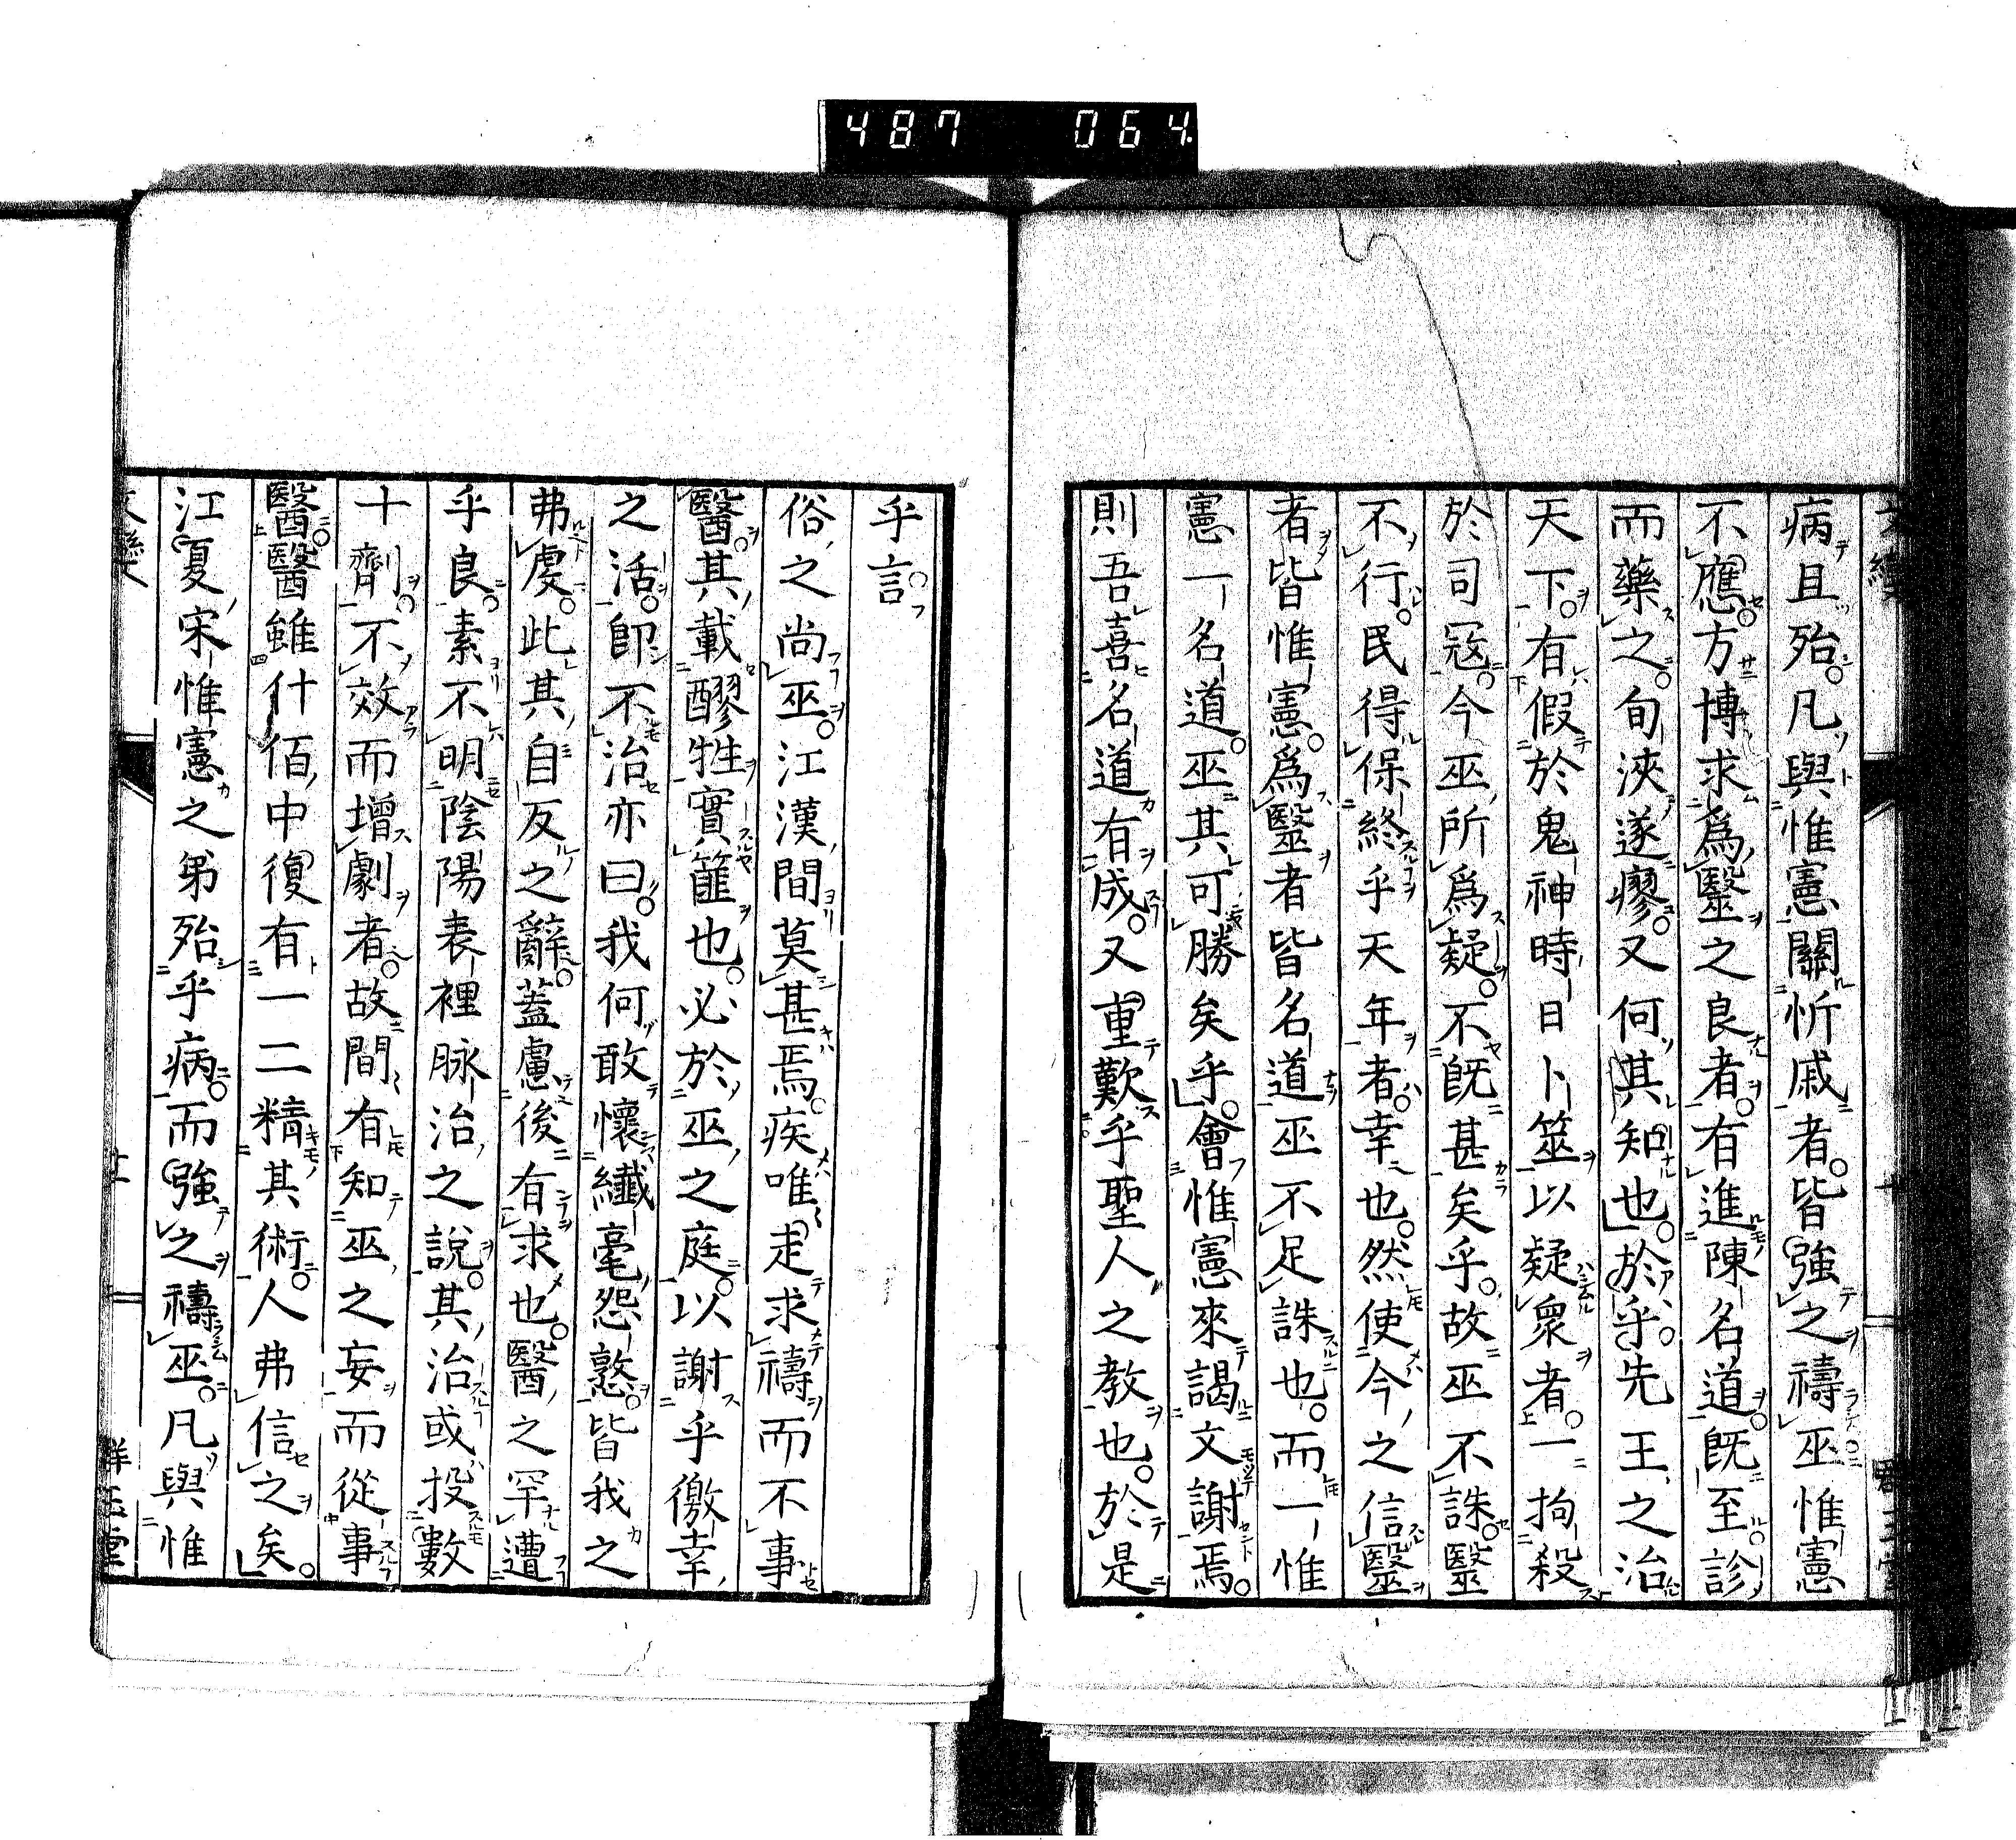 487 064
病且殆。凡與惟憲關忻戚者。皆強之禱巫惟憲
不應。方博求為毉之良者。有進陳名道。既至診
而藥之。旬浹遂瘳。又何其知也。於乎。先王之治
天下。有假於鬼神時日卜筮以疑眾者。一拘殺
於司冦。今巫所為疑。不既甚矣乎。故巫不誅。毉
不行。民得保終乎天年者。幸也。然使今之信毉
者皆惟憲。為毉者皆名道。巫不足誅也。而一惟
憲一名道。巫其可勝矣乎。會惟憲來謁文謝焉。
則吾喜名道有成。又重歎乎聖人之教也。於是
乎言。
俗之尚巫。江漢間莫甚焉。疾唯走求禱而不事
醫。其載醪牲實篚也。必於巫之庭。以謝乎徼幸
之活。卽不治亦曰。我何敢懷纖毫怨憝。皆我之
弗虔。此其自反之辭。蓋慮後有求也。醫之罕遭
乎良。素不明陰陽表裡脉治之說。其治或投數
十劑。不效而增劇者。故間有知巫之妄而從事
醫。醫雖什佰中復有一二精其術。人弗信之矣。
江夏宋惟憲之弟殆乎病。而強之禱巫。凡與惟